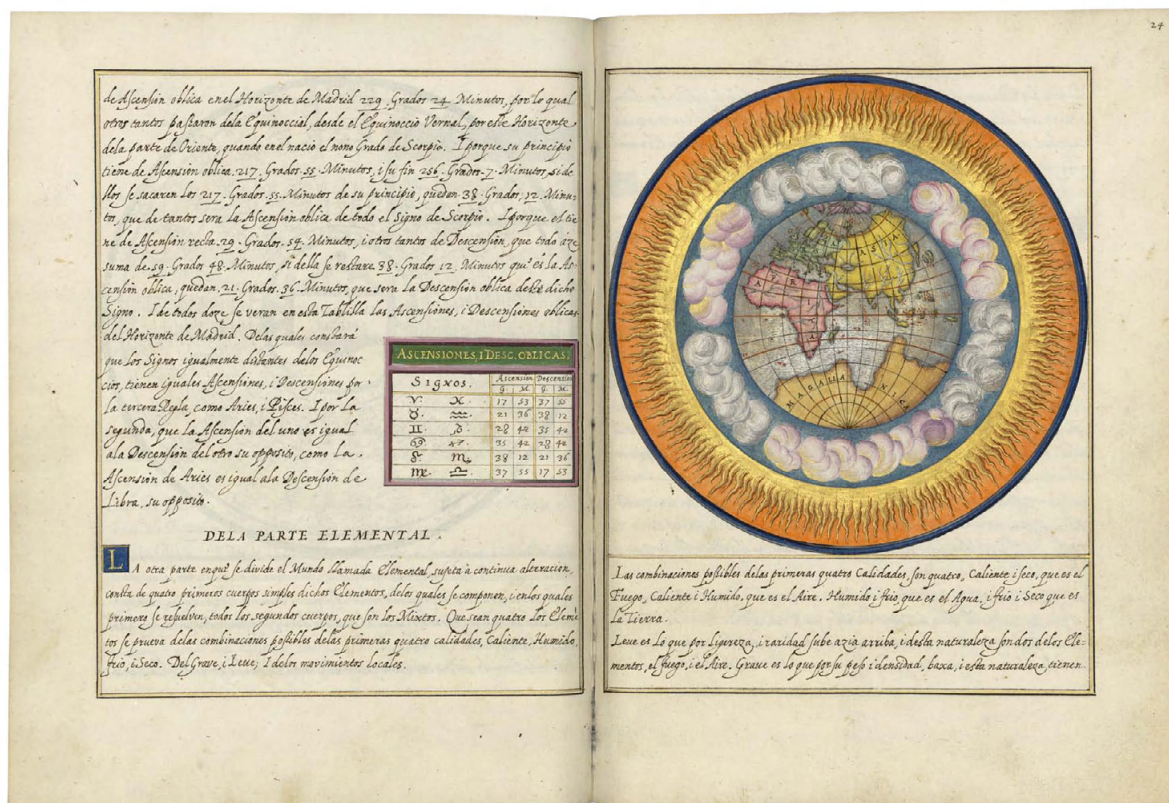 de Ascensión oblica en el Horizonte de Madrid 229. Grados 24. Minutos, por lo qual
otros tantos passaron dela Equinoccial, desde el Equinoccio Vernal, por este Horizonte
dela parte de Oriente, quando en el nació el nono Grado de Scorpio. I porque su principio
tiene de Ascensión oblica. 217. Grados. 55. Minutos, i su fin 256. Grados. 7. Minutos, si de
llos se sacaren los 217. Grados. 55. Minutos de su principio, quedan. 38. Grados. 12. Minu-
tos, que de tantos sera la Ascensión oblica de todo el Signo de Scorpio. I porque el tie
ne de Ascensión recta. 29. Grados. 54. Minutos, i otros tantos de Descensión, que todo aze
suma de 59. Grados 48. Minutos, si della se restare 38. Grados 12. Minutos que es la As-
censión oblica, quedan, 21. Grados. 36. Minutos, que sera la Descensión oblica deste dicho
Signo. I de todos doze se veran en esta Tablilla las Ascensiones, i Descensiones oblicas
del Horizonte de Madrid. Delas quales constará
que los Signos igualmente distantes delos Equinoc
cios, tienen iguales Ascensiones, i Descensiones por
la tercera Regla, como Aries, i Pisces. I por la
segunda, que la Ascensión del uno es igual
ala Descensión del otro su opposito, como la
Ascensión de Aries es igual ala Descensión de
Libra, su opposito.
ASCENSIONES, I DESC. OBLICAS.
Signos. Ascension Descension
G. M. G. M.
♈ ♓ 17 53 37 55
♉ ♒ 21 36 38 12
♊ ♑ 28 42 35 42
♋ ♐ 35 42 28 42
♌ ♏ 38 12 21 36
♍ ♎ 37 55 17 53
DELA PARTE ELEMENTAL.
LA otra parte en que se divide el Mundo llamada Elemental, sujeta à continua alteracion,
consta de quatro primeros cuerpos simples dichos Elementos, delos quales se componen, i en los quales
primero se resuelven, todos los segundos cuerpos, que son los Mixtos. Que sean quatro los Elemē
tos se prueva de las combinaciones possibles delas primeras quatro calidades, Caliente, Humido,
frio, i Seco. Del Grave, i Leve; I delos movimientos locales.
24
ASIA
AFRICA
MAGALLANICA
Las combinaciones possibles delas primeras quatro Calidades, son quatro, Caliente i seco, que es el
Fuego, Caliente i Humido, que es el Aire. Humido i frio, que es el Agua, i frio i Seco que es
la Tierra.
Leve es lo que por ligereza, i raridad sube azia arriba, i desta naturaleza son dos delos Ele-
mentos, el fuego, i el Aire. Grave es lo que por su peso i densidad, baxa, i esta naturaleza, tienen